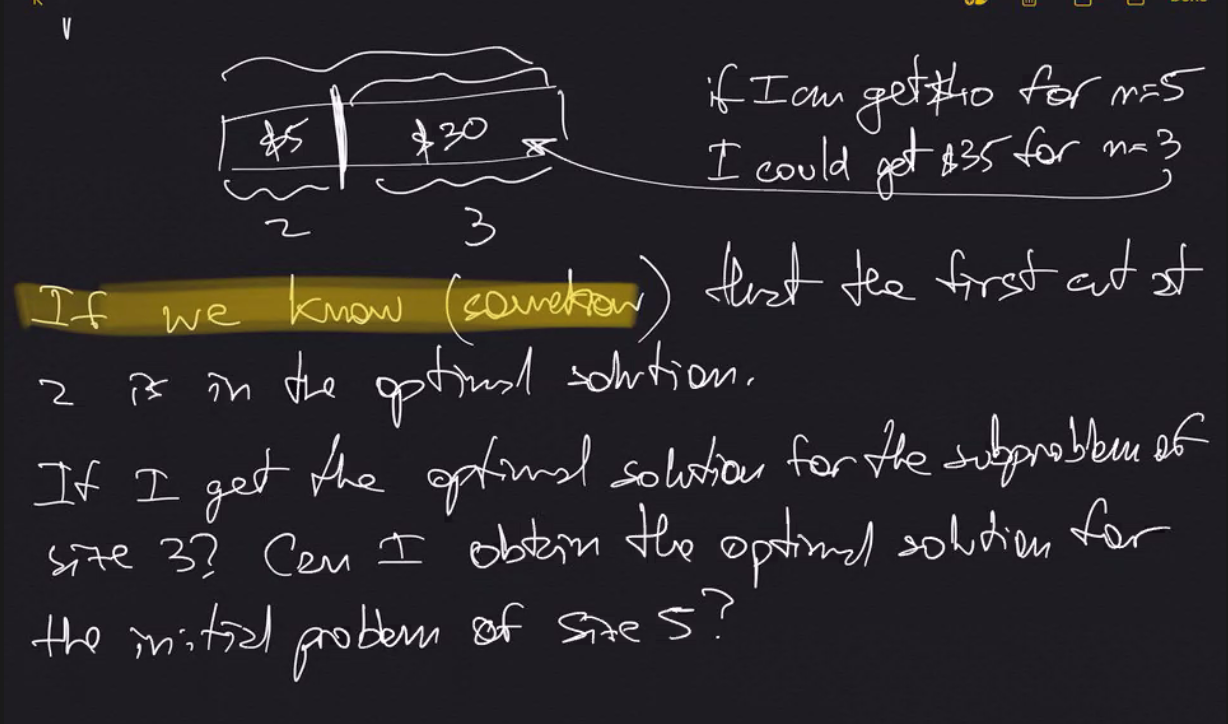 if I can get $40 for n=5
$5 $30
I could get $35 for n=3
2 3
If we know (somehow) that the first cut at
2 is in the optimal solution.
If I get the optimal solution for the subproblem of
size 3? Can I obtain the optimal solution for
the initial problem of size 5?